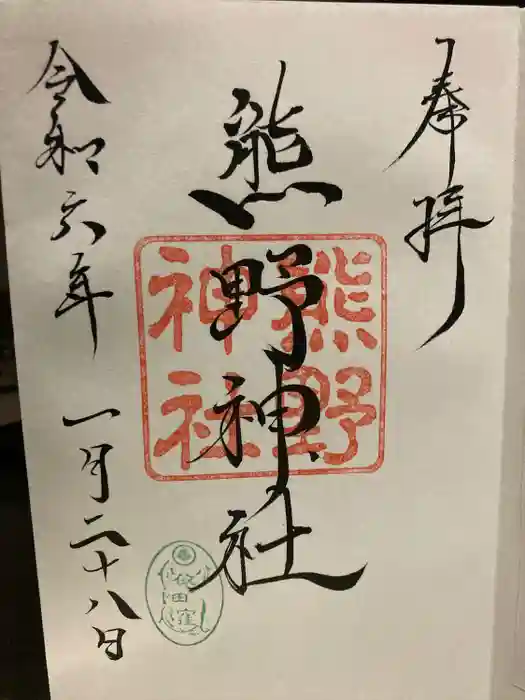 奉拝
熊野神社
熊野
神社
令和六年 一月二十八日